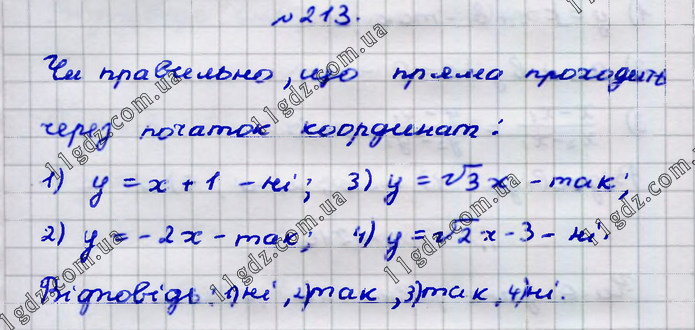 №213.
Чи правильно, що пряма проходить
через початок координат:
1) y = x + 1 - ні; 3) y = √3 x - так;
2) y = -2x - так; 4) y = √2 x - 3 - ні.
Відповідь: 1) ні, 2) так, 3) так, 4) ні.
11gdz.com.ua
11gdz.com.ua
11gdz.com.ua
11gdz.com.ua
11gdz.com.ua
11gdz.com.ua